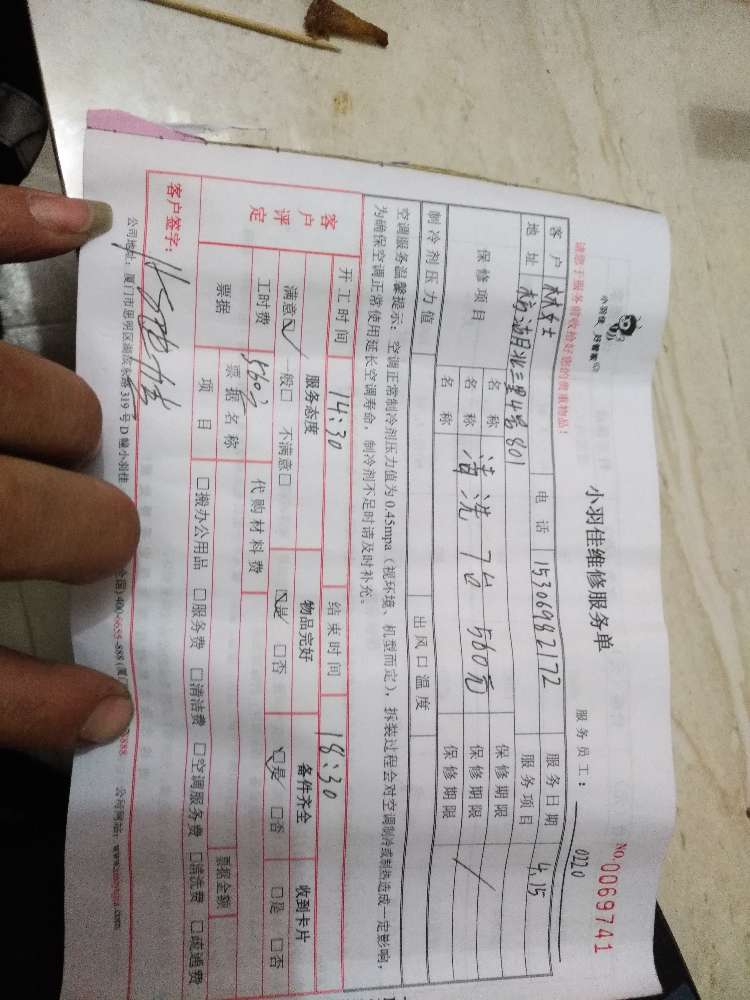 小羽佳 好管家
小羽佳维修服务单
NO. 0069741
请您于服务前收拾好您的贵重物品!
服务员工: 0220
客户 林女士 电话 15306982172 服务日期 4.15
地址 杨湖北三里4号801 服务项目
保修项目 名称 保修期限
名称 清洗7台 560元 保修期限
名称 保修期限
制冷剂压力值 出风口温度
空调服务温馨提示:空调正常制冷剂压力值为0.45mpa(视环境、机型而定),拆装过程会对空调制冷或制热造成一定影响,
为确保空调正常使用延长空调寿命,制冷剂不足时请及时补充。
客户评定 开工时间 14:30 结束时间 18:30
服务态度 物品完好 备件齐全 收到卡片
满意☑ 一般□ 不满意□ ☑是 □否 ☑是 □否 □是 □否
工时费 560元 代购材料费
票据 票据名称 票据金额
项目 □搬办公用品 □服务费 □清洁费 □空调服务费 □清洗费 □疏通费
客户签字:
公司地址:厦门市思明区湖滨东路319号D幢小羽佳
公司网站: